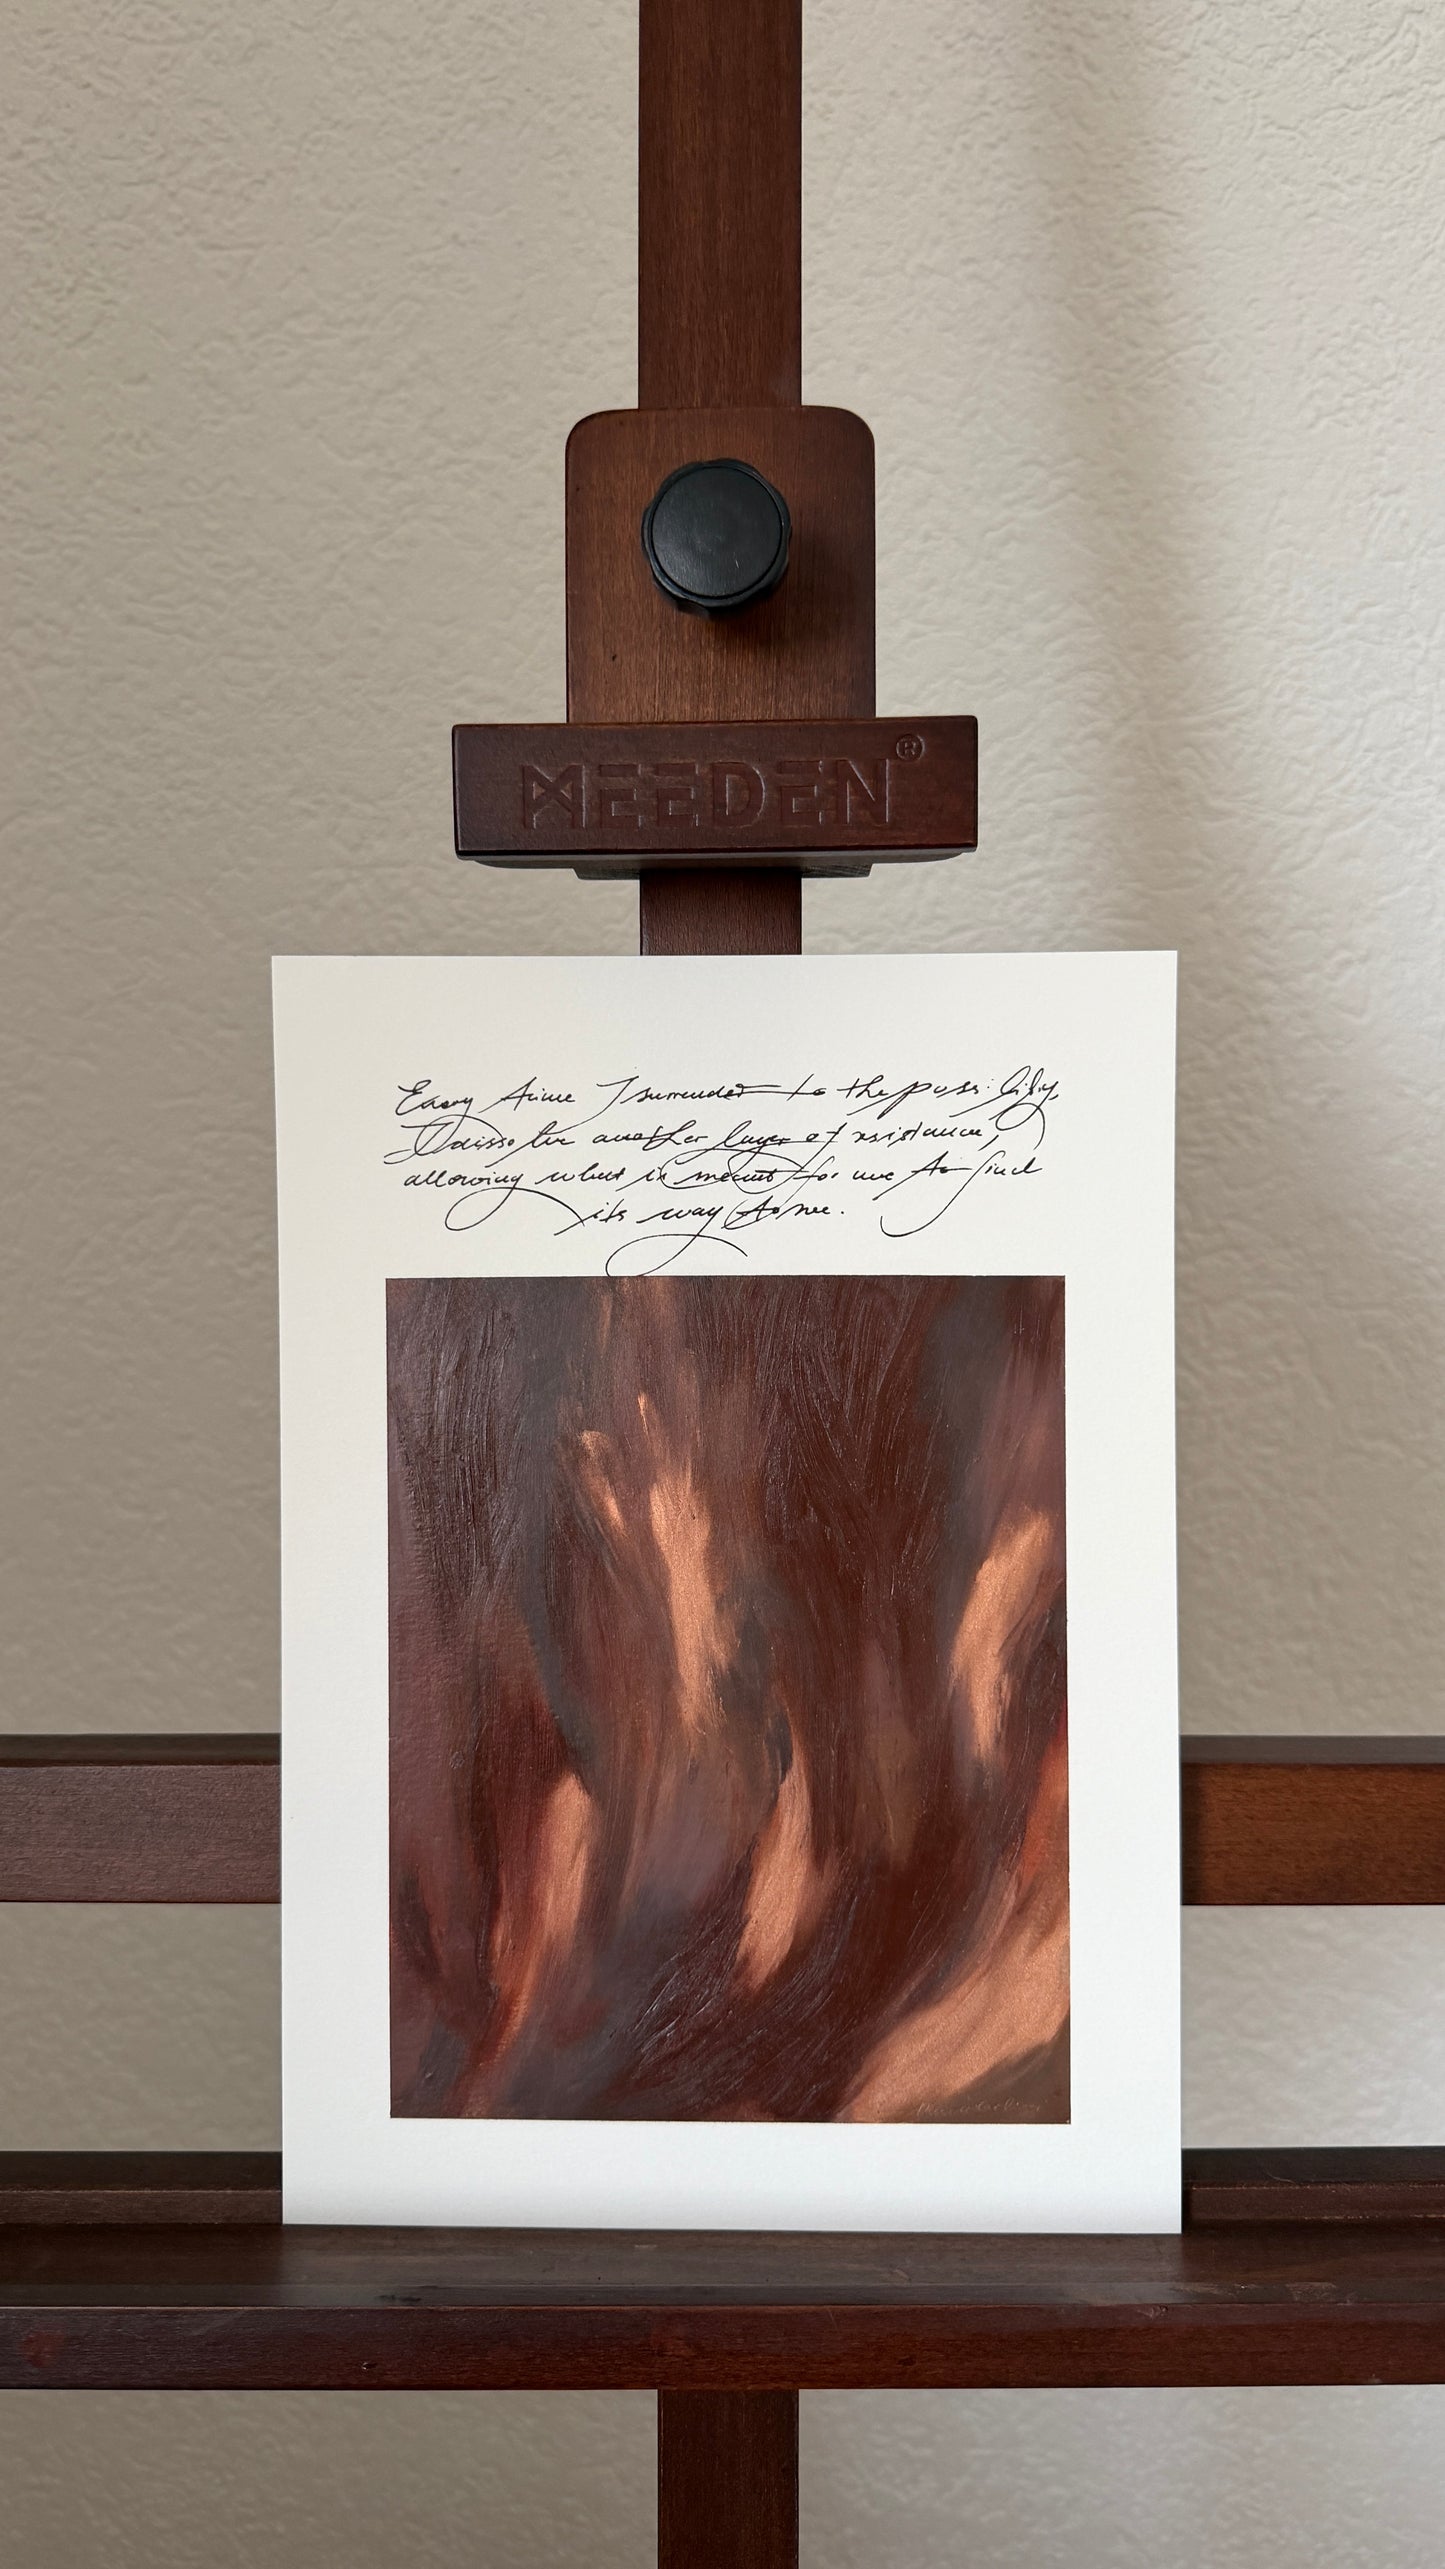 MEEDEN®
Every time I surrender to the possibility,
I dissolve another layer of resistance,
allowing what is meant for me to find
its way to me.